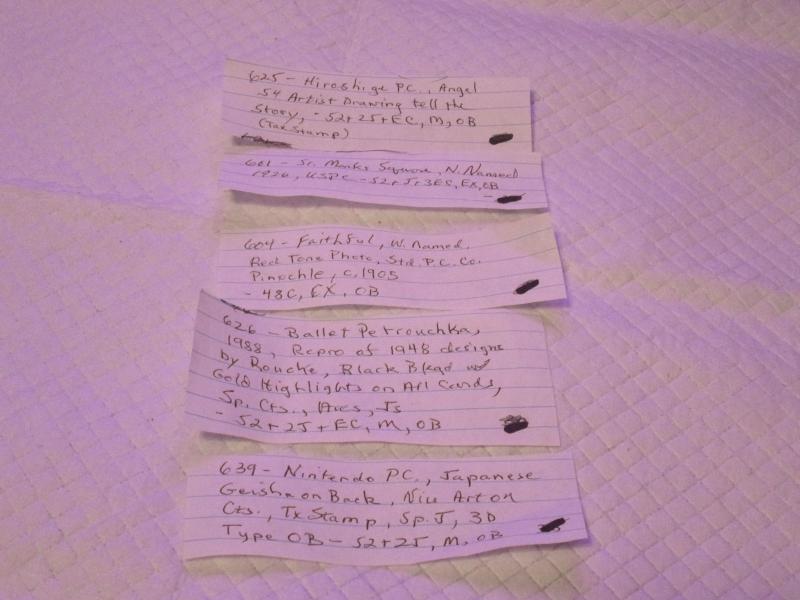 625 - Hiroshige PC., Angel
54 Artist Drawing tell the
Story, - 52+2J+EC, M, OB
(Tax Stamp)
601 - St. Marks Square, N. Named
1920, USPC - 52+J+3EC, EX, OB
604 - Faithful, W. Named,
Red Tone Photo, Std. P.C. Co.
Pinochle, c.1905
- 48C, EX, OB
626 - Ballet Petrouchka,
1988, Repro of 1948 designs
by Rouche, Black Bkgd w/
Gold Highlights on All Cards,
Sp. Cts., Aces, Js
- 52+2J+EC, M, OB
639 - Nintendo PC., Japanese
Geisha on Back, Nice Art on
Cts., Tx Stamp, Sp. J, 3D
Type OB - 52+2J, M, OB